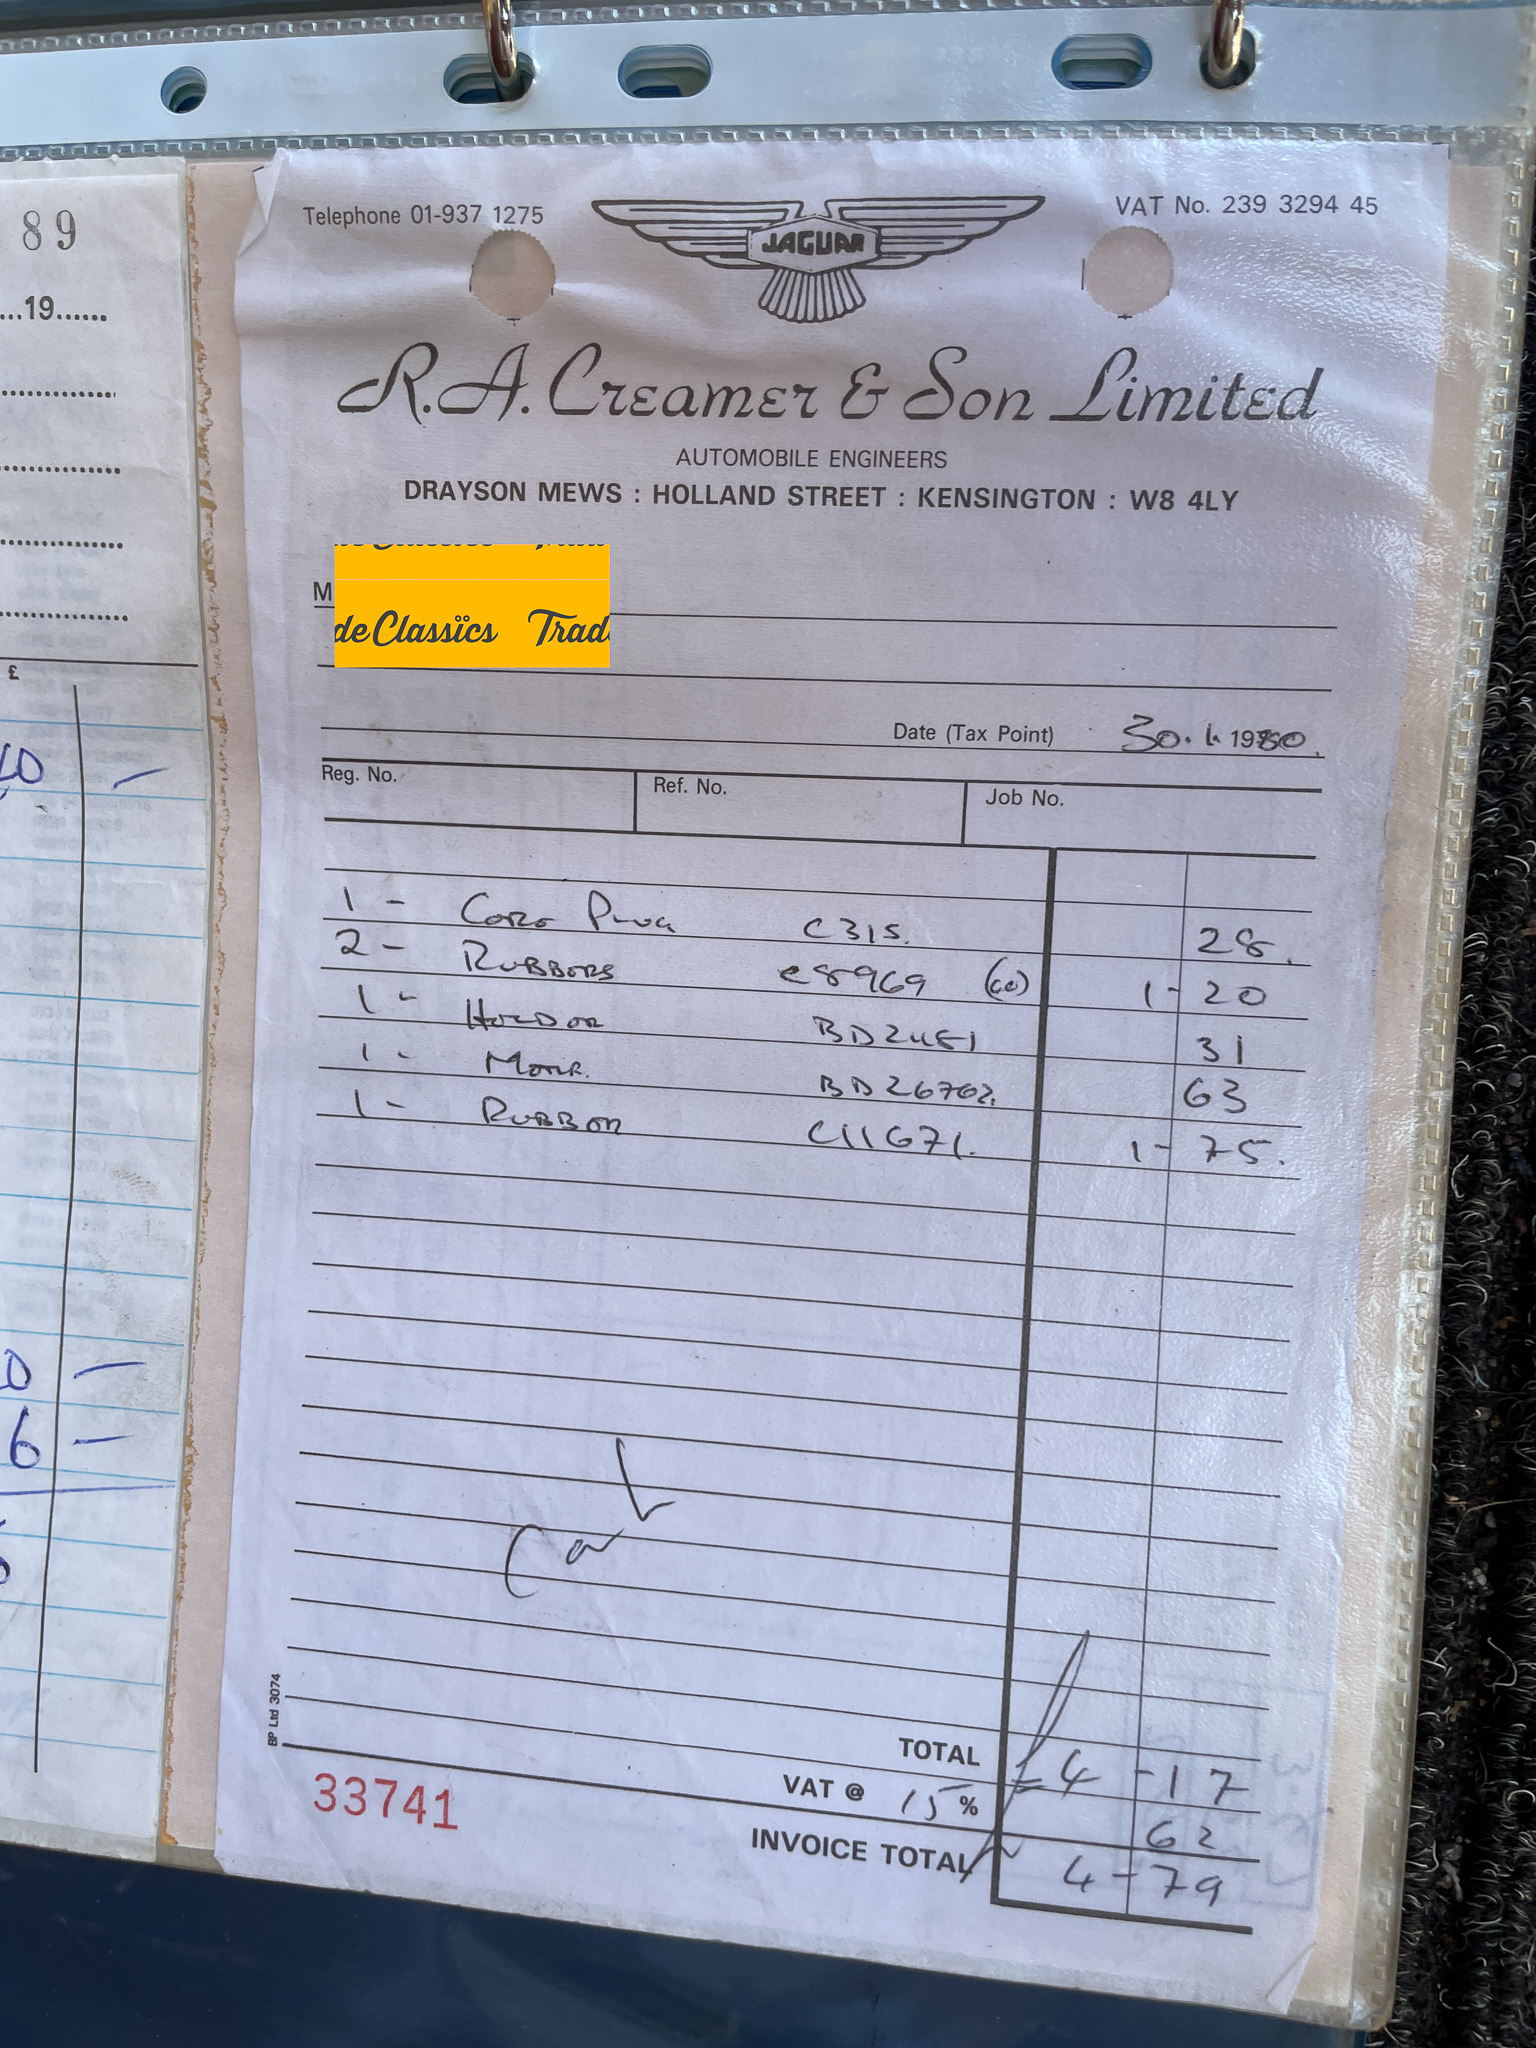 89
...19......
£
0 -
6 -
Telephone 01-937 1275
JAGUAR
VAT No. 239 3294 45
R.A. Creamer & Son Limited
AUTOMOBILE ENGINEERS
DRAYSON MEWS : HOLLAND STREET : KENSINGTON : W8 4LY
M
de Classics Trad
Date (Tax Point) 30. 1. 1980.
Reg. No. Ref. No. Job No.
1 - Core Plug C315. 28.
2 - RUBBERS C8969 (60) 1 - 20
1 - HOLDER 31
1 - 63
1 - RUBBER C11671. 1 - 75.
TOTAL £4 - 17
VAT @ 15% 62
INVOICE TOTAL 4 - 79
33741
BP Ltd 3074